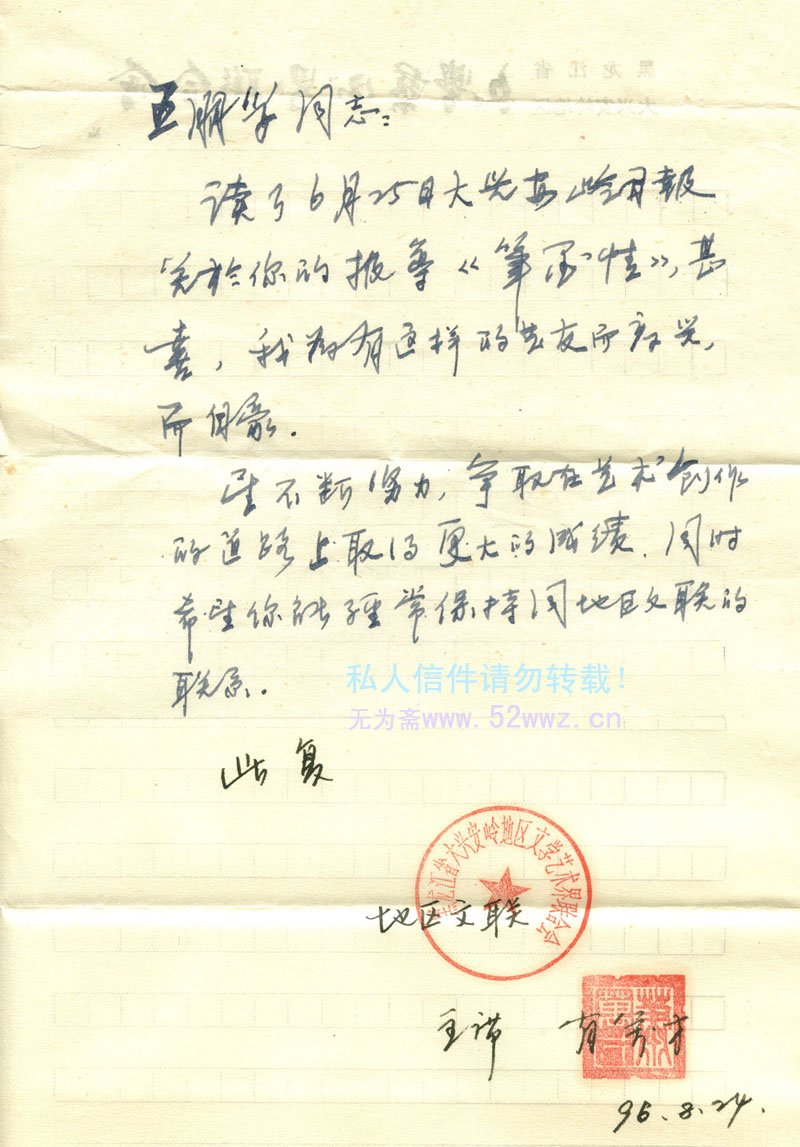 黑龙江省
大兴安岭地区
文学艺术界联合会
王鹏学同志:
读了6月25日大兴安岭日报
关於你的报导《笔墨情》,甚
喜,我为有这样的艺友而高兴,
而自豪.
望不断努力,争取在艺术创作
的道路上取得更大的成绩.同时
希望你能经常保持同地区文联的
联系.
私人信件请勿转载!
无为斋www.52wwz.cn
此复
黑龙江省大兴安岭地区文学艺术界联合会
地区文联
主席
96.8.24.